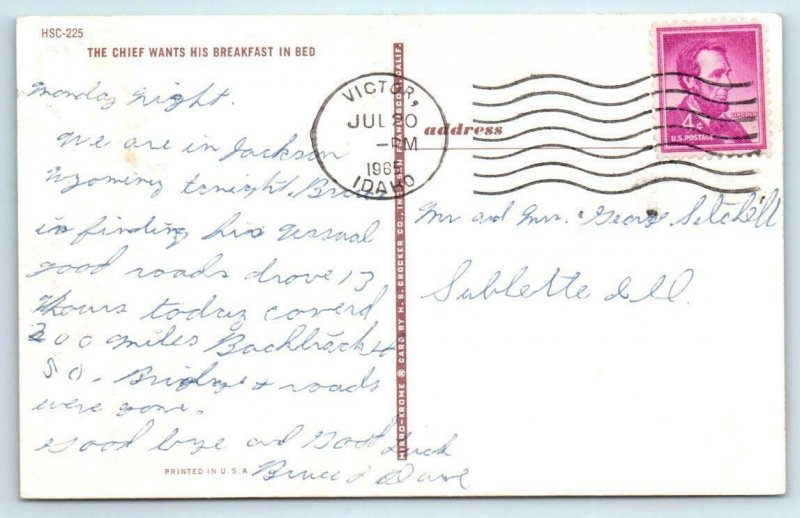 HSC-225
THE CHIEF WANTS HIS BREAKFAST IN BED
Monday Night.
We are in Jackson
Wyoming tonight. Bruce
is finding his ususal
good roads drove 13
Hours today coverd
200 miles Backtrack
50. Bridge + roads
were gone.
Good bye and Good Luck
Bruce & Dave
PRINTED IN U.S.A.
MIRRO-KROME ® CARD BY H. S. CROCKER CO., INC. SAN FRANCISCO, CALIF.
VICTOR,
JUL 20
-PM
1965
IDAHO
address
LINCOLN
4¢
U.S. POSTAGE
Mr and Mrs. George Setchell
Sublette Ill.